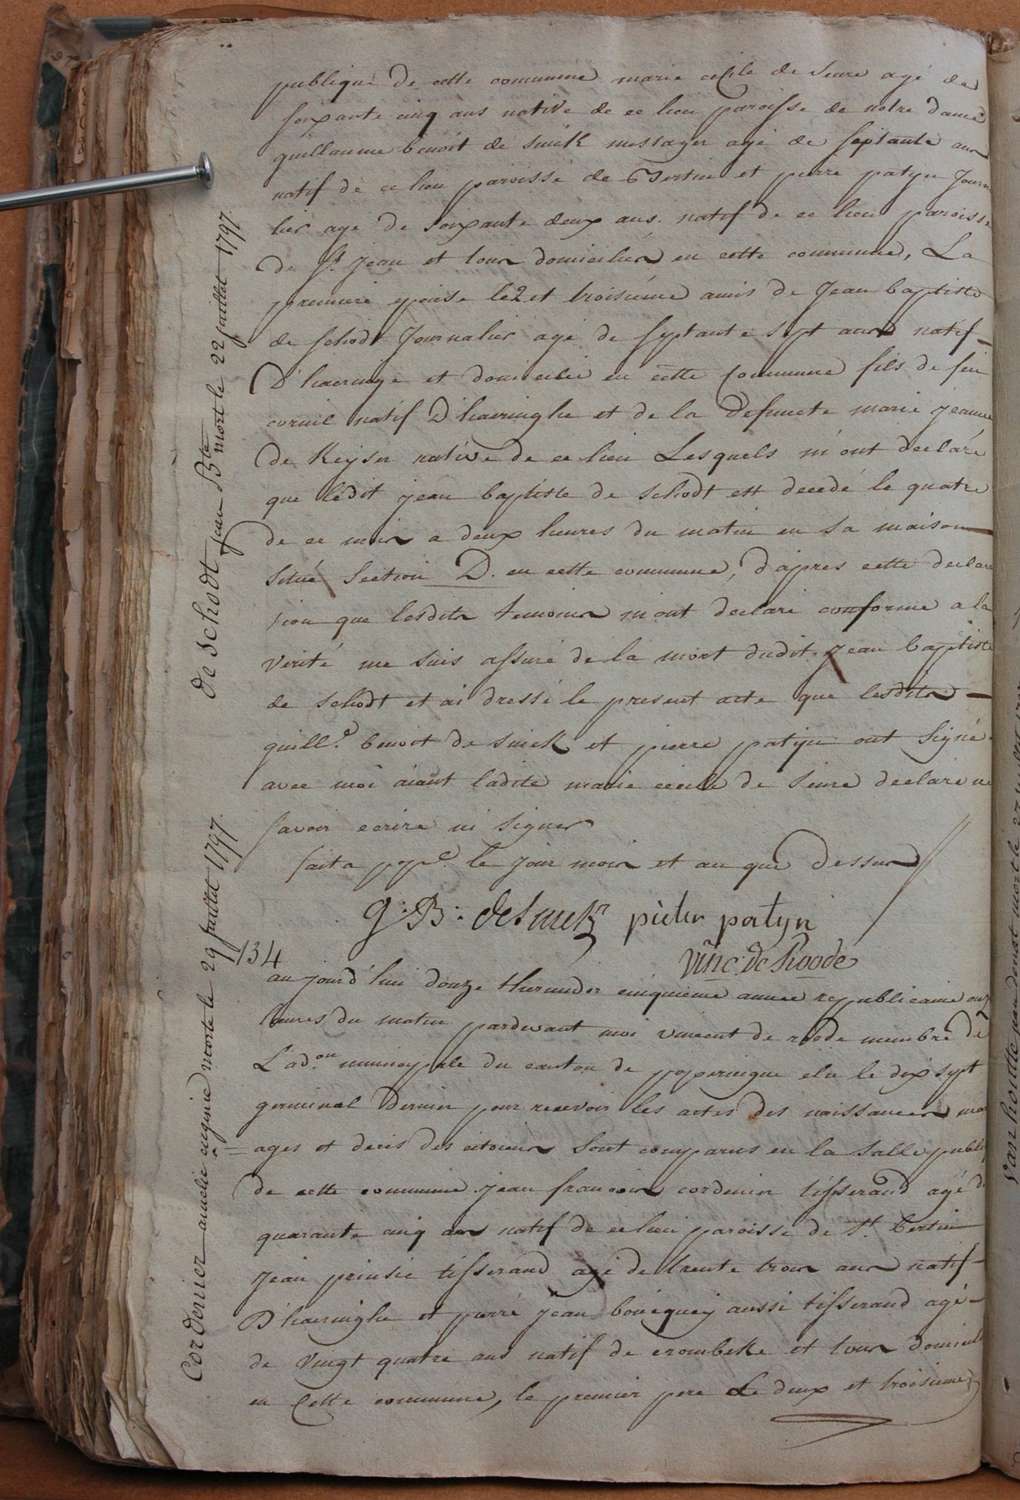 publique de cette commune marie cecile de Seure agé de
soixante cinq ans native de ce lieu paroisse de notre dame
guillaume benoit de smick messager agé de septante ans
natif de ce lieu paroisse de Bertin et pierre patyn Journa
lier agé de soixante deux ans natif de ce lieu paroisse
de St Jean et tous domiciliés en cette commune, La
premiere epouse le 2 et troisieme amis de Jean baptiste
de schodt Journalier agé de septante sept ans natif
D'haeringe et domicilié en cette Commune fils de feu
corneil natif D'haeringhe et de la defuncte marie jeanne
de Keyser native de ce lieu Lesquels m'ont declaré
que ledit jean baptiste de schodt est decedé le quatre
de ce mois a deux heures du matin en sa maison
situé Section D. en cette commune, d'apres cette declara
sion que lesdits temoins m'ont declaré conforme a la
verité me suis assuré de la mort dudit jean baptiste
de schodt et ai dressé le present acte que lesdits
guill.e benoit de smick et pierre patyn ont signé
avec moi aiant ladite marie cecile de Seure declaré ne
savoir ecrire ni signer
fait a pop.e le jour mois et an que dessus
g: B: desmick pieter patyn
Vinc de Roode
134
aujourd'hui douze thermidor cinquieme année republicaine onze
heures du matin pardevant moi vincent de roode membre de
L'ad.on municipale du canton de poperingue elu le dix sept
germinal dernier pour recevoir les actes des naissances mari
ages et decés des citoiens sont comparus en la salle publique
de cette commune jean francois cordenier tisserand agé de
quarante cinq ans natif de ce lieu paroisse de St. Bertin
Jean tisserand agé de trente trois ans natif
D'haeringhe et pierre jean aussi tisserand agé
de vingt quatre ans natif de crombeke et tous domiciliés
en Cette commune, le premier pere Le deux et troisieme
de schodt jean Bte mort le 22 juillet 1797
Cordenier amelie eugenie morte le 29 juillet 1797.